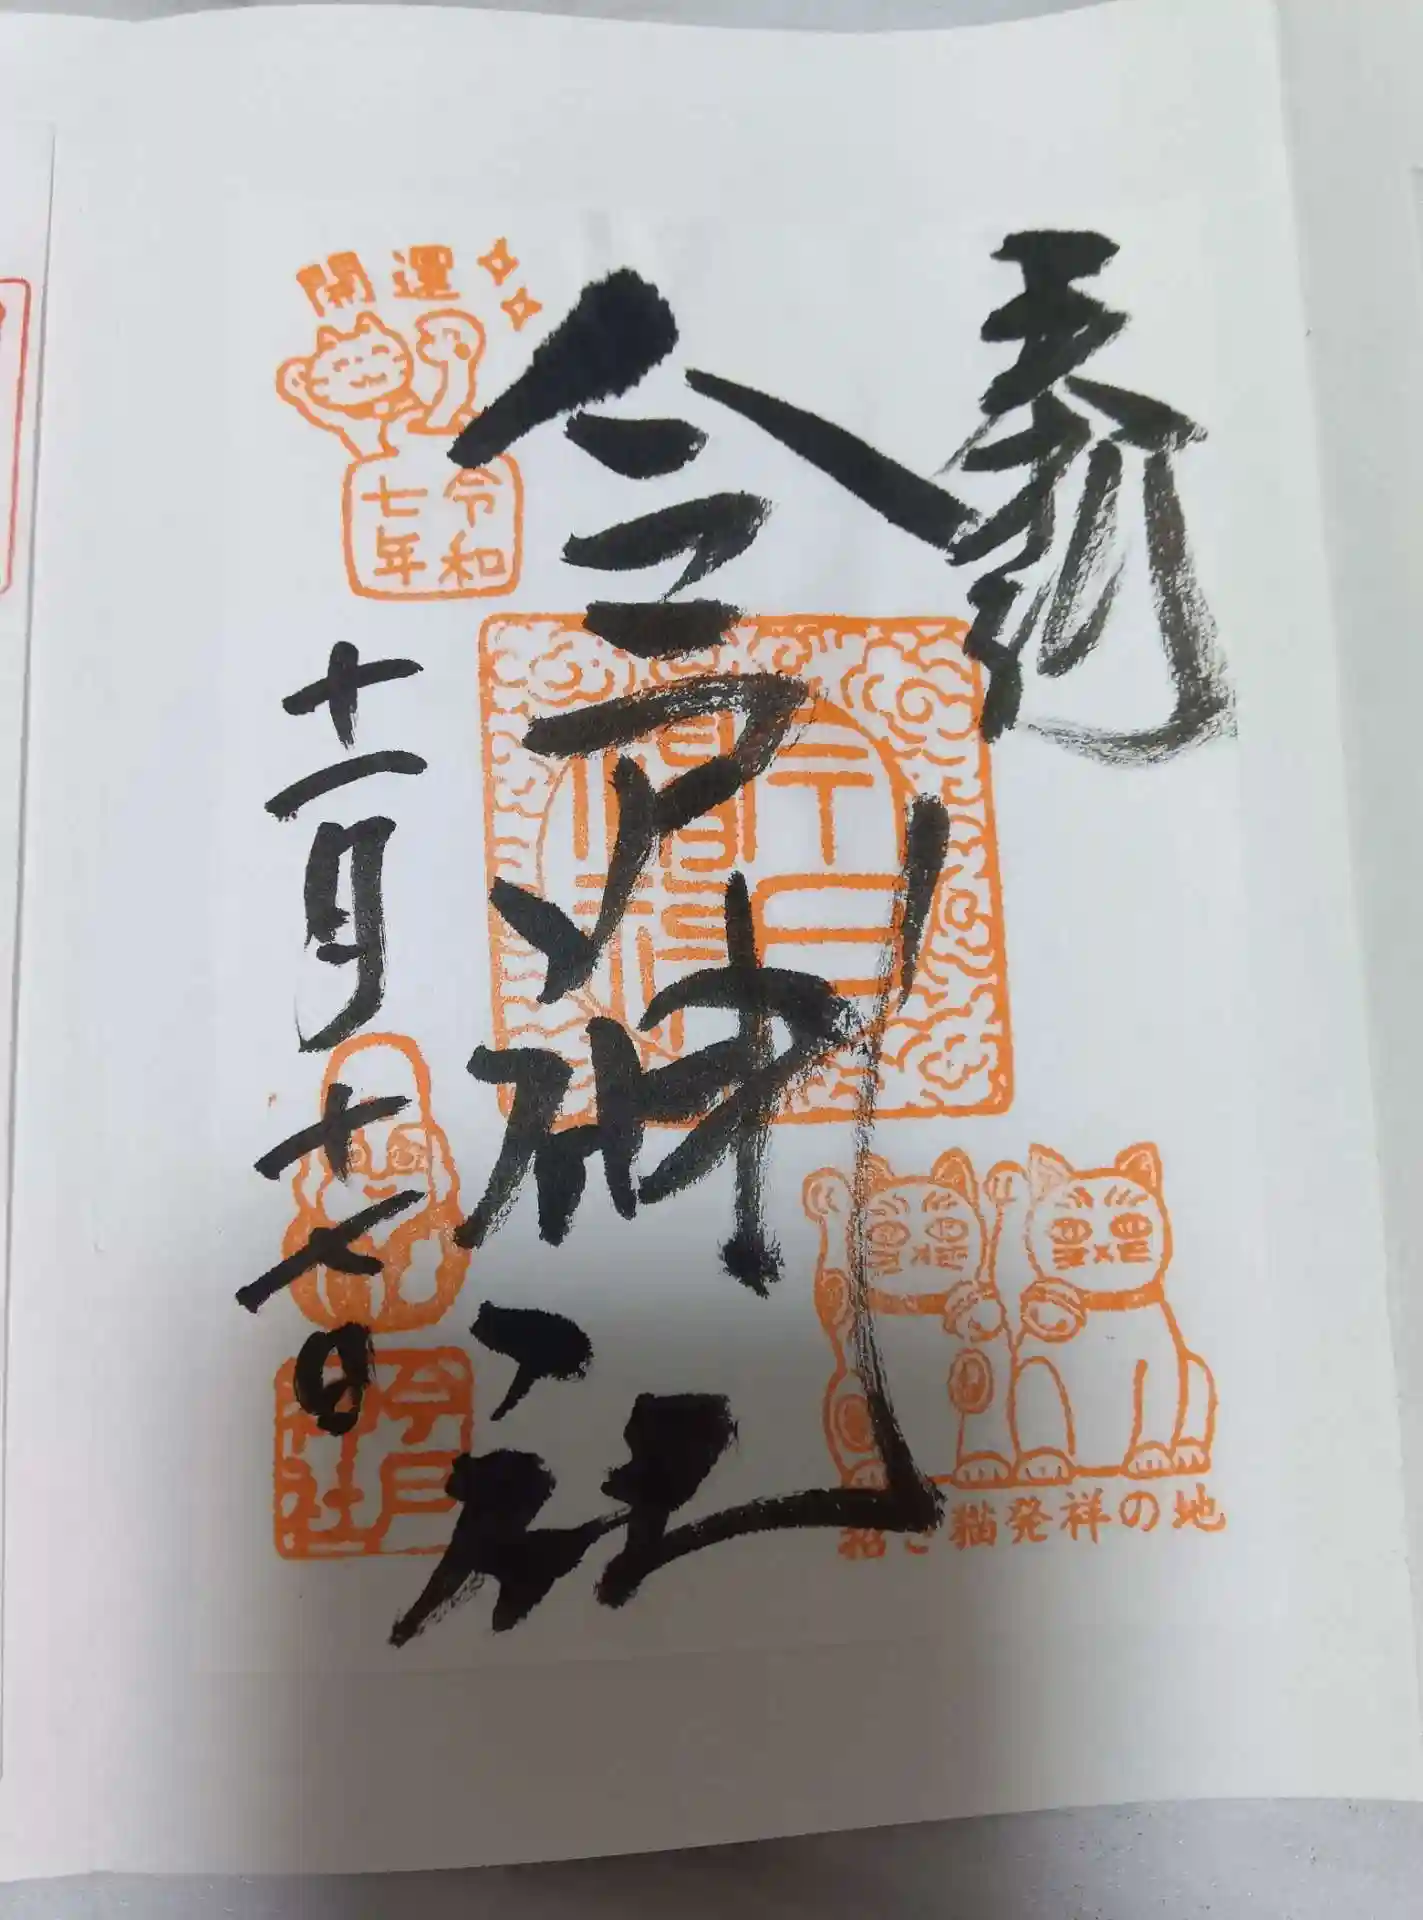 奉拝
今戸神社
開運
令和
七年
十一月十七日
今戸
神社
招き猫発祥の地